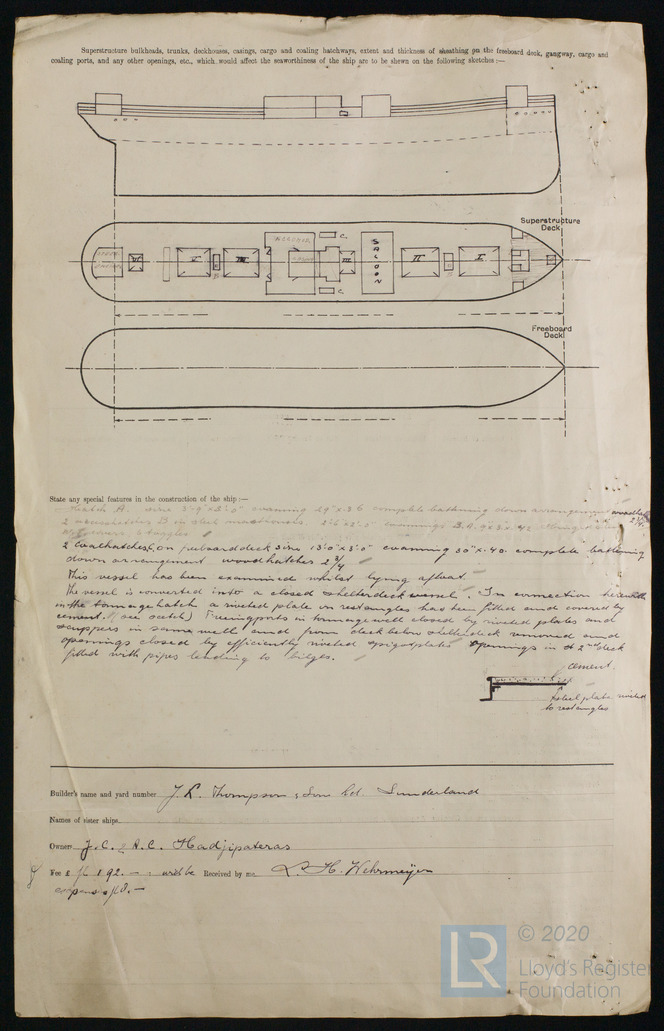 Superstructure bulkheads, trunks, deckhouses, casings, cargo and coaling hatchways, extent and thickness of sheathing on the freeboard deck, gangway, cargo and
coaling ports, and any other openings, etc., which would affect the seaworthiness of the ship are to be shewn on the following sketches :—
Superstructure
Deck
C
VI
V
B
IV
III
SALOON
II
B
I
C
Freeboard
Deck
State any special features in the construction of the ship :—
Hatch A. size complete battening down arrangement woodhatches
2 B in steel
2 Coalhatches C on freeboarddeck size 13'0" x 3'0" coaming 30" x .40 complete battening
down arrangement woodhatches 2 3/4
This vessel has been examined whilst lying afloat.
The vessel is converted into a closed shelterdeck vessel. In connection herewith
in the tonnagehatch a riveted plate on restangles has been fitted and covered by
cement. (see scetch) Freeingports in tonnagewell closed by riveted plates and
scuppers in same well and from deck below shelterdeck removed and
openings closed by efficiently riveted plates openings in 2nd deck
fitted with pipes leading to bilges.
cement
steel plate riveted
to restangles
Builder's name and yard number J. L. Thompson & Son Ld. Sunderland
Names of sister ships
Owner J. C. & A. C. Hadjipateras
Fee £ 92.— will be Received by me L. H. Wehrmeijer
expenses
LR
© 2020
Lloyd's Register
Foundation